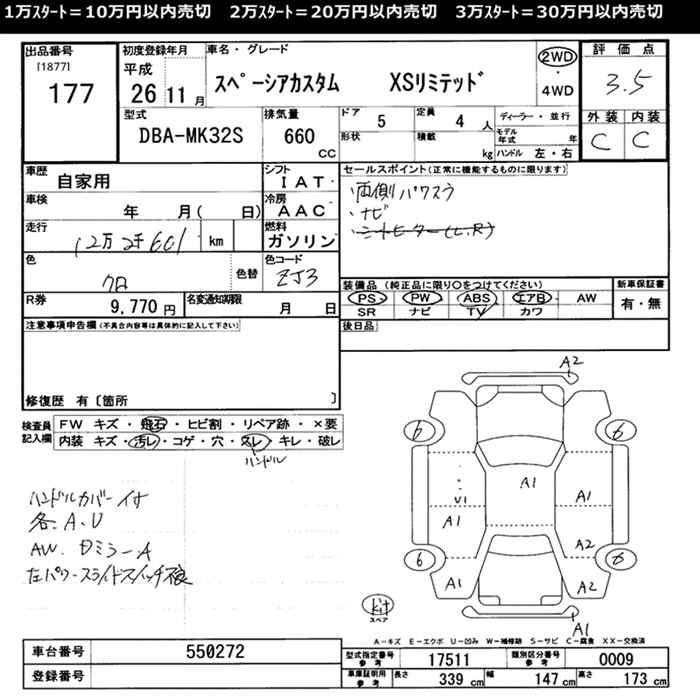 1万ｽﾀｰﾄ＝10万円以内売切　2万ｽﾀｰﾄ＝20万円以内売切　3万ｽﾀｰﾄ＝30万円以内売切
出品番号 [1877] 177
初度登録年月 平成 26 11 月
車名・グレード スペーシアカスタム XSリミテッド
2WD
4WD
評価点 3.5
外装 内装
C C
型式 DBA-MK32S
排気量 660 CC
ドア 5 定員 4 人
形状 積載 kg
ディーラー・並行
モデル年式 年
ハンドル 左・右
車歴 自家用
シフト IAT
車検 年 月( 日)
冷房 AAC
走行 12万2千601 km
燃料 ガソリン
色 クロ 色替
色コード ZJ3
R券 9,770 円
名変通知期限 月 日
セールスポイント(正常に機能するものに限ります)
・両側パワスラ
・ナビ
・シートヒーター(L,R)
装備品 (純正品に限り○をつけてください)
PS PW ABS エアB AW
SR ナビ TV カワ
新車保証書 有・無
後日品
注意事項申告欄(不具合内容等は具体的に記入して下さい)
修復歴 有〔箇所 〕
検査員記入欄
FW キズ・飛石・ヒビ割・リペア跡・×要
内装 キズ・汚レ・コゲ・穴・スレ・キレ・破レ
ハンドル
ハンドルカバー付
各.A.U
AW.
左パワースライドスイッチ
A2
6 6
A1
U1
A1
A1
A2
6 6
A1
A2
A1
スペア
A-キズ E-エクボ U-凹み W-補修跡 S-サビ C-腐食 XX-交換済
車台番号 550272
登録番号
型式指定番号参考 17511 類別区分番号参考 0009
車庫証明用参考 長さ 339 cm 幅 147 cm 高さ 173 cm